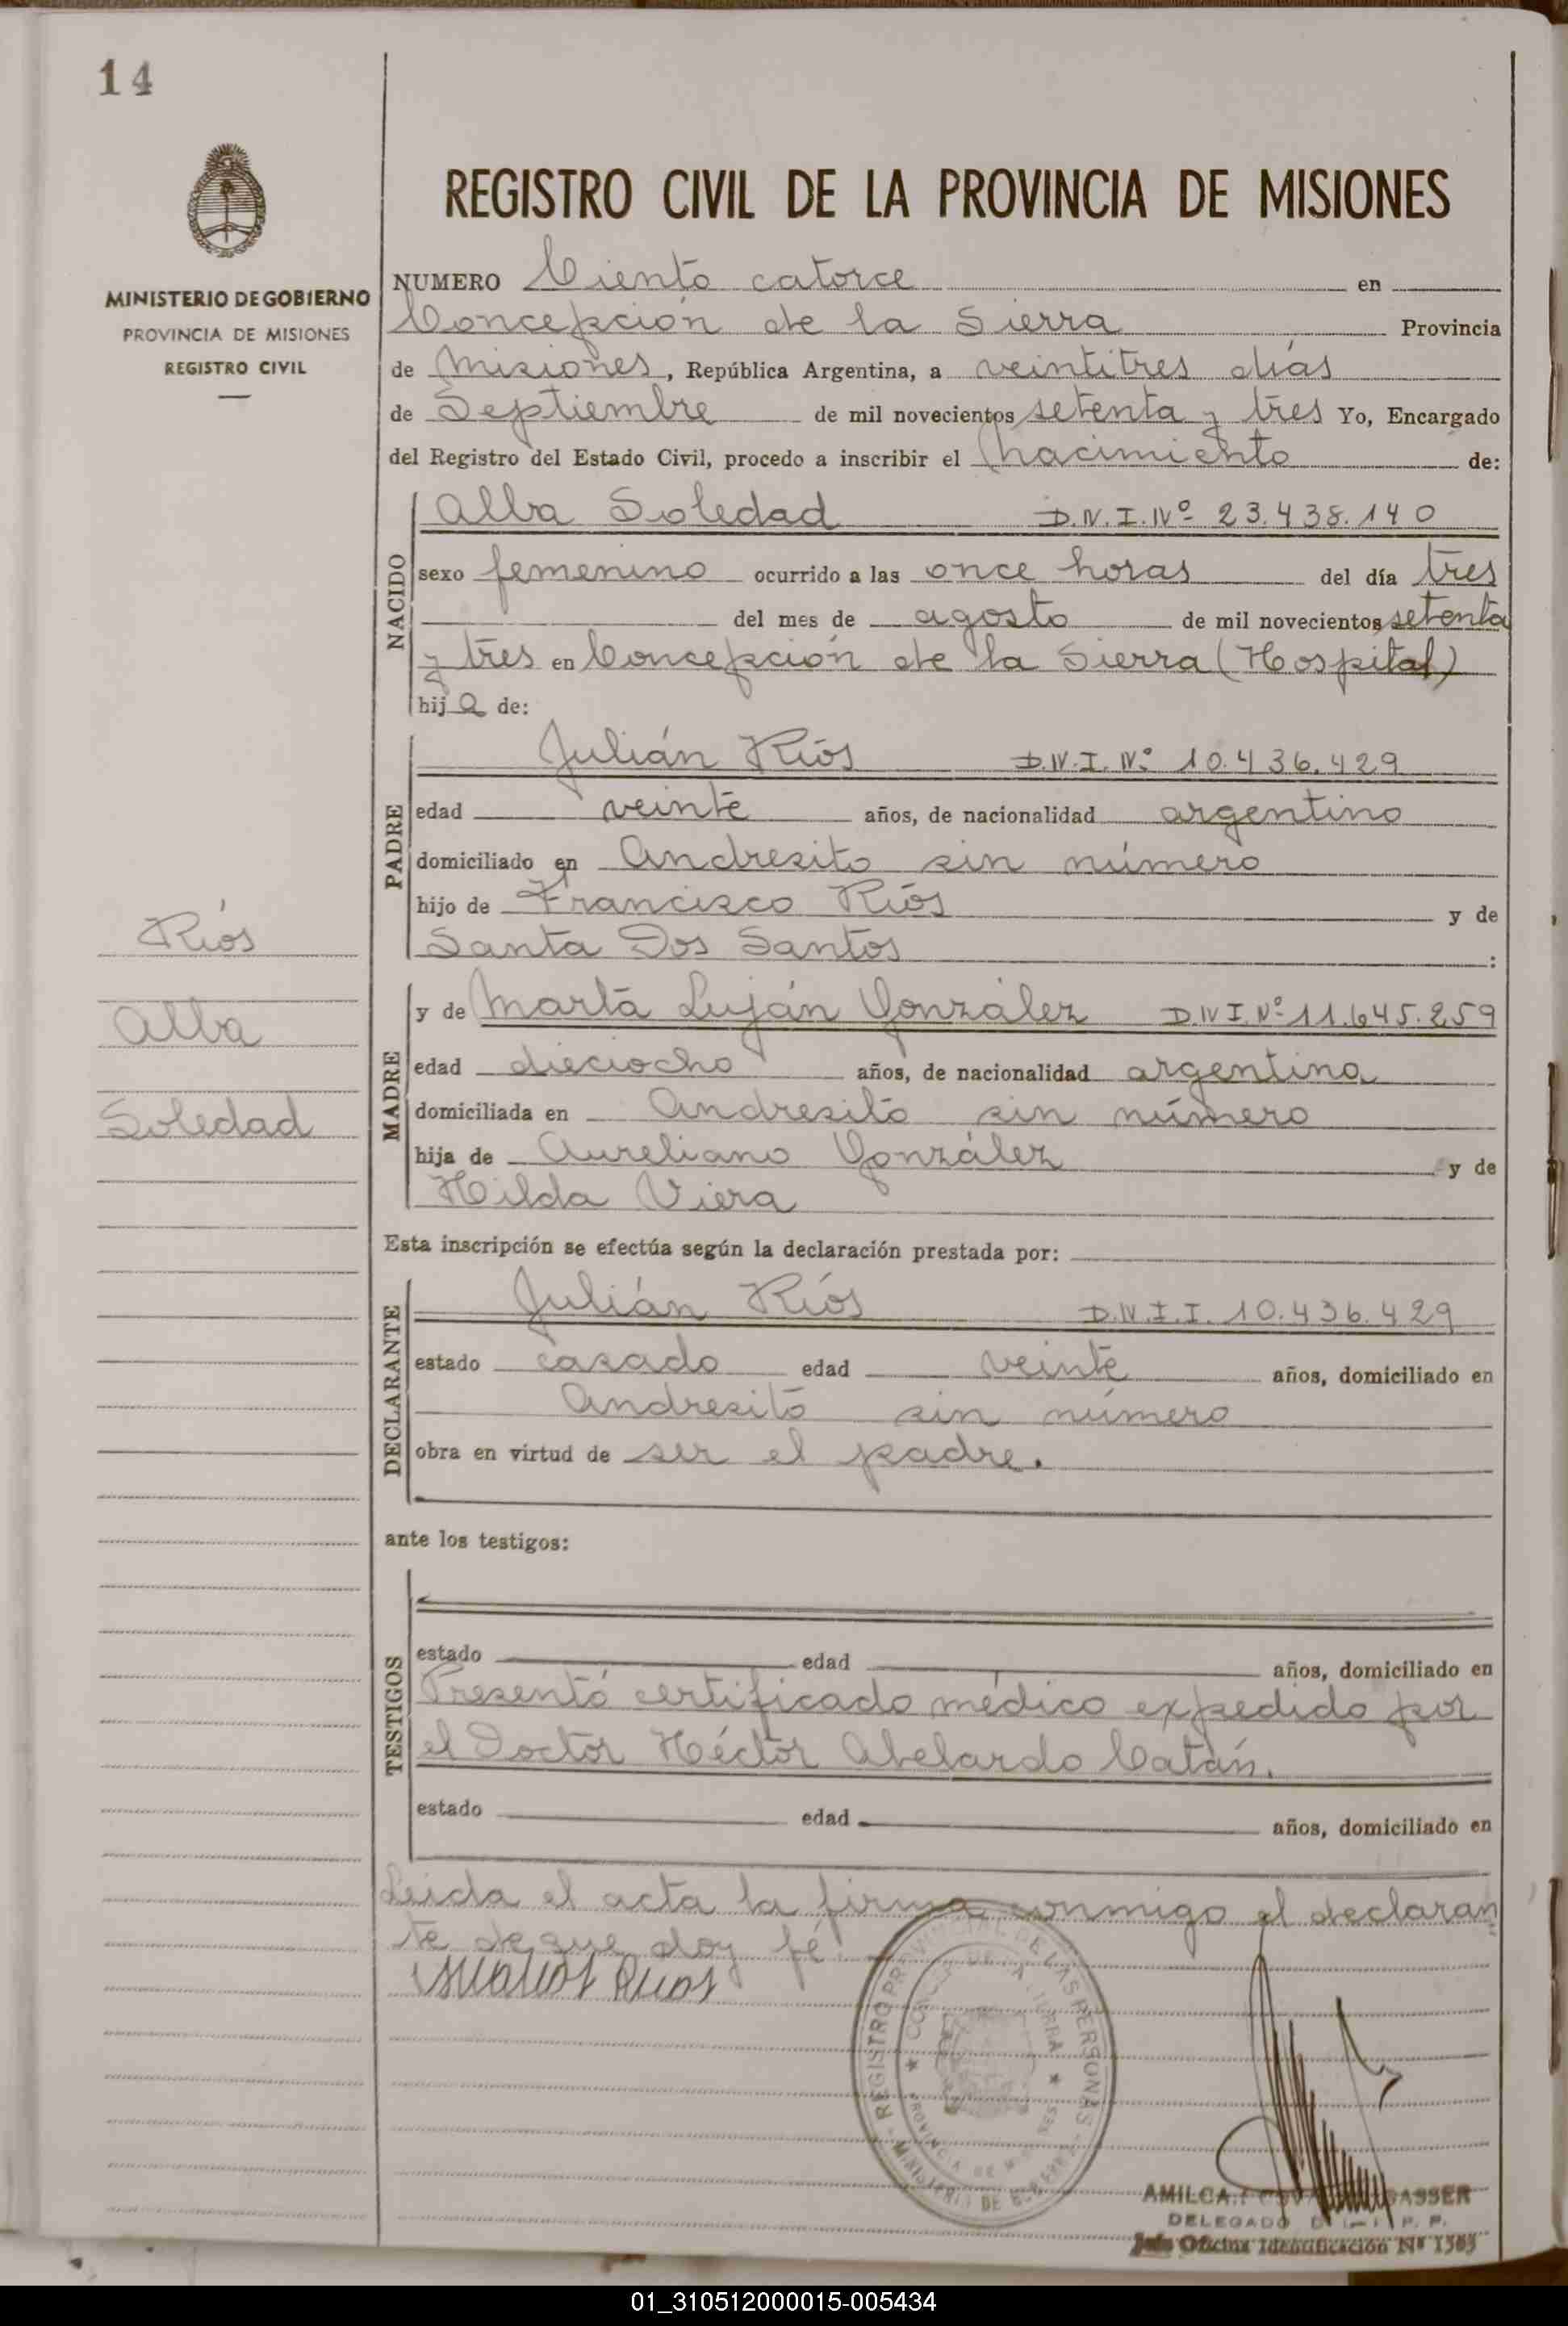 14
MINISTERIO DE GOBIERNO
PROVINCIA DE MISIONES
REGISTRO CIVIL
REGISTRO CIVIL DE LA PROVINCIA DE MISIONES
NUMERO Ciento catorce en
Concepción de la Sierra Provincia
de Misiones, República Argentina, a veintitres días
de Septiembre de mil novecientos setenta y tres Yo, Encargado
del Registro del Estado Civil, procedo a inscribir el nacimiento de:
NACIDO
Alba Soledad D.N.I. Nº 23.438.140
sexo femenino ocurrido a las once horas del día tres
del mes de agosto de mil novecientos setenta
y tres en Concepción de la Sierra (Hospital)
hija de:
PADRE
Julián Ríos D.N.I. Nº 10.436.429
edad veinte años, de nacionalidad argentino
domiciliado en Andresito sin número
hijo de Francisco Ríos y de
Santa Dos Santos :
MADRE
y de Marta Luján González D.N.I. Nº 11.645.259
edad dieciocho años, de nacionalidad argentina
domiciliada en Andresito sin número
hija de Aureliano González y de
Hilda Viera
Ríos
Alba
Soledad
Esta inscripción se efectúa según la declaración prestada por:
DECLARANTE
Julián Ríos D.N.I.I. 10.436.429
estado casado edad veinte años, domiciliado en
Andresito sin número
obra en virtud de ser el padre.
ante los testigos:
TESTIGOS
estado edad años, domiciliado en
Presentó certificado médico expedido por
el Doctor Héctor Abelardo Catán.
estado edad años, domiciliado en
Leida el acta la firma conmigo el declaran
te de que doy fé.
Rios
REGISTRO PROVINCIAL DE LAS PERSONAS
CONCEP. DE LA SIERRA
PROVINCIA DE MISIONES
MINISTERIO DE GOBIERNO
AMILCAR GASSER
DELEGADO
Jefe Oficina Identificación Nº 1565
01_310512000015-005434